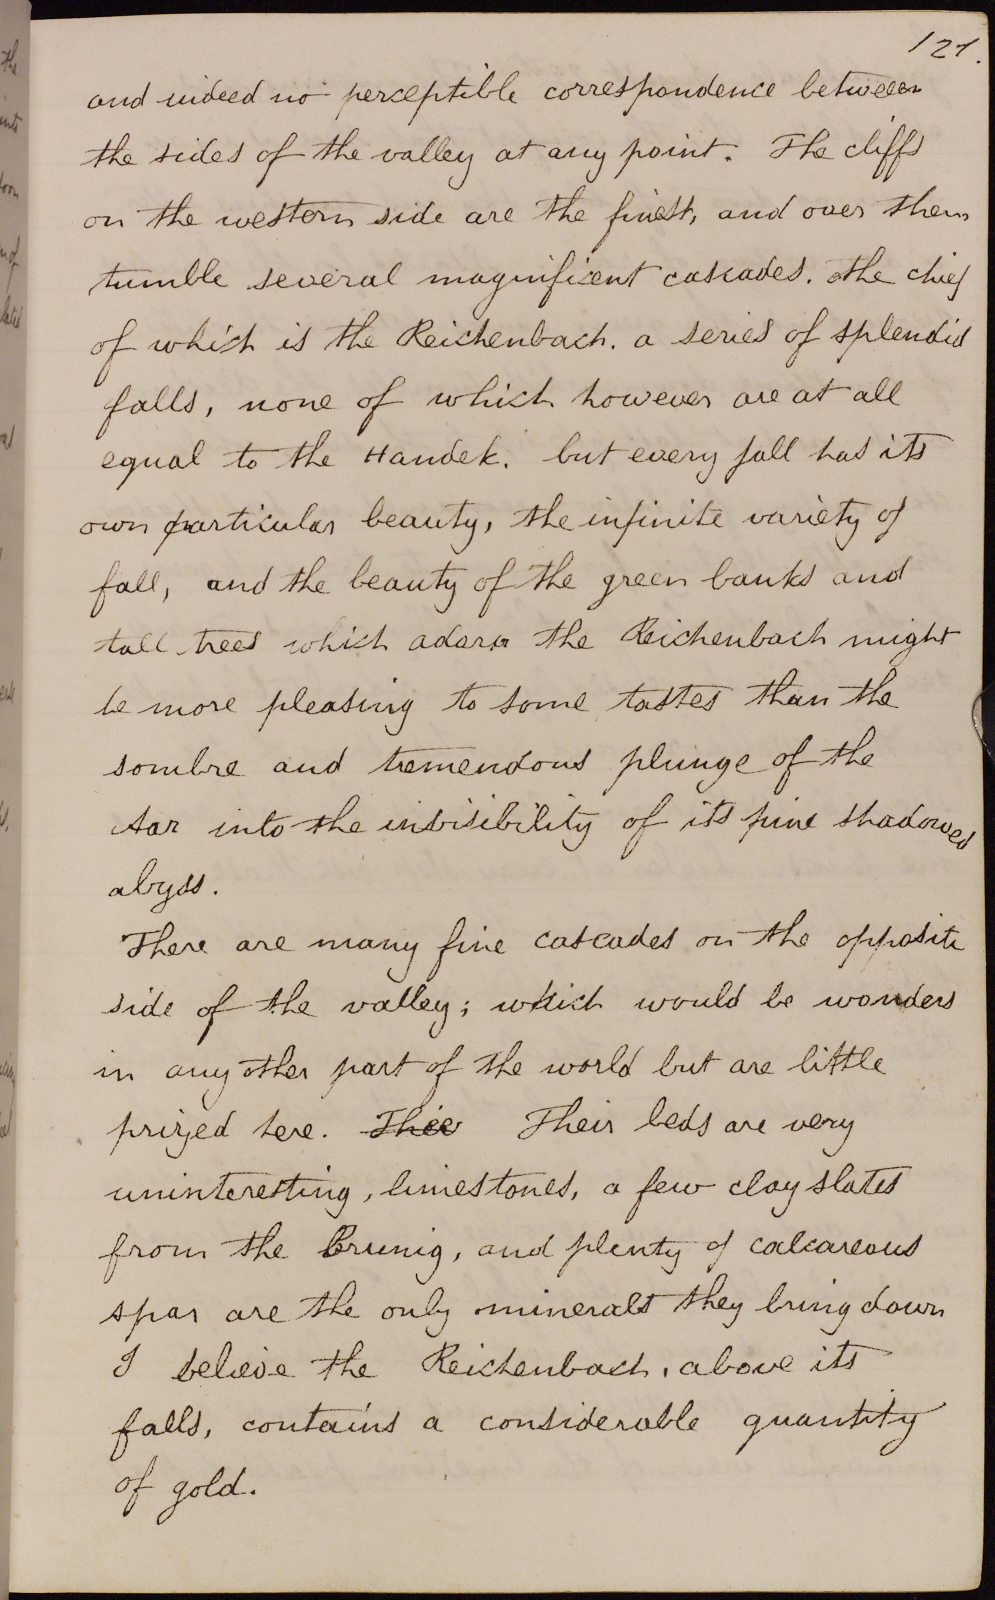 127.
and indeed no perceptible correspondence between
the sides of the valley at any point. The cliffs
on the western side are the finest, and over them
tumble several magnificent cascades. the chief
of which is the Reichenbach. a series of splendid
falls, none of which however are at all
equal to the Handek. but every fall has its
own particular beauty, the infinite variety of
fall, and the beauty of the green banks and
tall trees which adorn the Reichenbach might
be more pleasing to some tastes than the
sombre and tremendous plunge of the
Aar into the invisibility of its pine shadowed
abyss.
There are many fine cascades on the opposite
side of the valley; which would be wonders
in any other part of the world but are little
prized here. Thier Their beds are very
uninteresting, limestones, a few clay slates
from the Brunig, and plenty of calcareous
spar are the only minerals they bring down
I believe the Reichenbach, above its
falls, contains a considerable quantity
of gold.